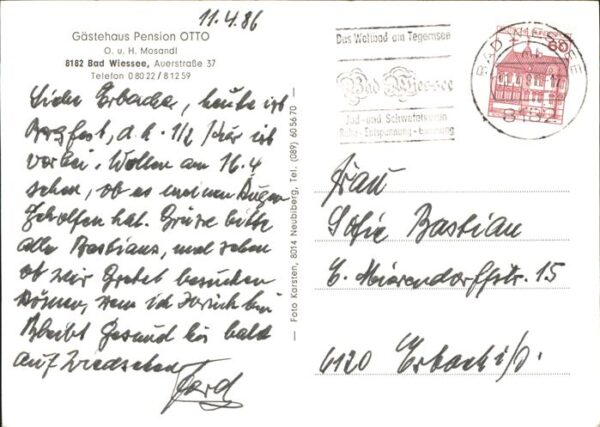 11.4.86
Gästehaus Pension OTTO
O. u. H. Mosandl
8182 Bad Wiessee, Auerstraße 37
Telefon 0 80 22 / 8 12 59
Liebe Erbacher, heute ist
Bergfest, d.h. 1/2 Kur ist
vorbei. Wollen am 16.4
sehen, ob es meinen Augen
geholfen hat. Grüße bitte
alle Bastians, mal sehen
ob wir Gretel besuchen
können, wenn ich zurück bin
Bleibt gesund bis bald
auf Wiedersehen
Gerd
Foto Karsten, 8014 Neubiberg, Tel. (089) 60 56 70
Das Weltbad am Tegernsee
Bad Wiessee
Jod- und Schwefelquellen
Ruhe - Entspannung - Genesung
BAD WIESSEE
8182
60
Frau
Sofie Bastian
C. Mierendorffstr. 15
6120 Erbach i/O.